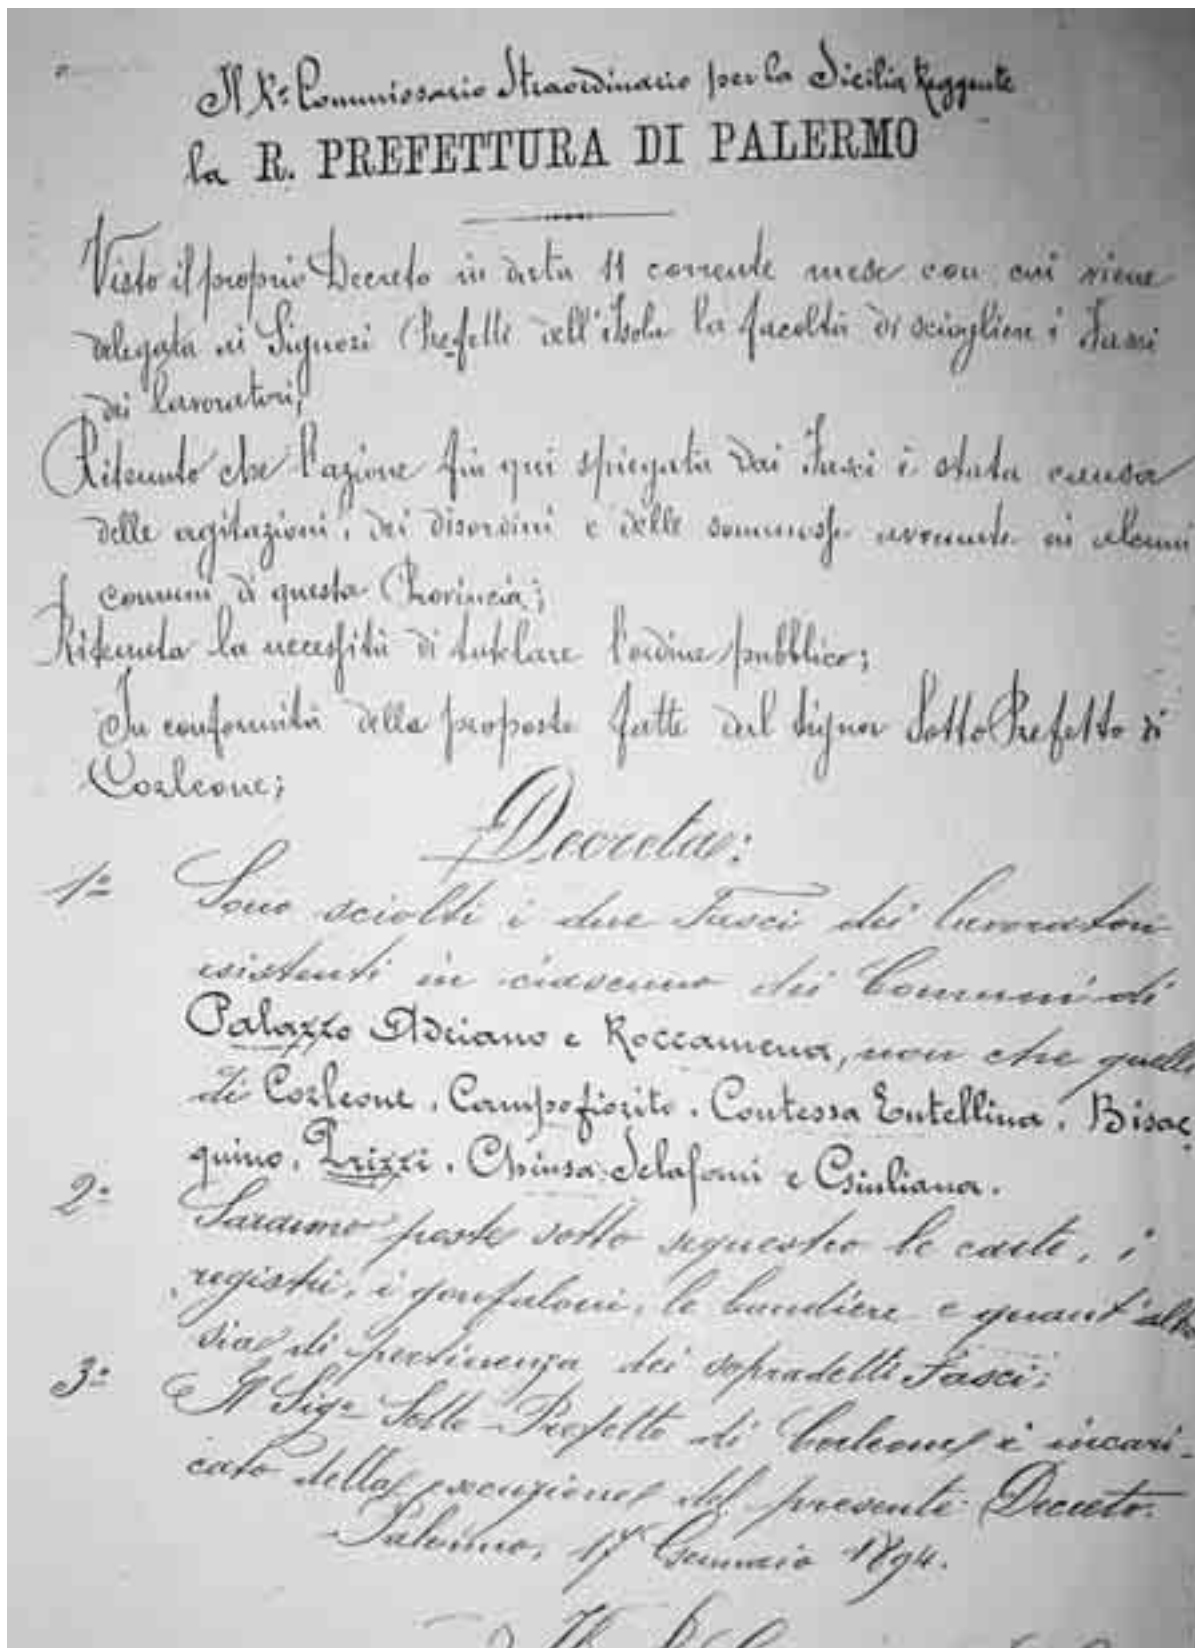 Il R.º Commissario Straordinario per la Sicilia Reggente
la R. PREFETTURA DI PALERMO
Visto il proprio Decreto in data 11 corrente mese con cui viene
delegata ai Signori Prefetti dell'Isola la facoltà di sciogliere i Fasci
dei lavoratori;
Ritenuto che l'azione fin qui spiegata dai Fasci è stata causa
delle agitazioni, dei disordini e delle sommosse avvenute in alcuni
comuni di questa Provincia;
Ritenuta la necessità di tutelare l'ordine pubblico;
In conformità delle proposte fatte dal signor Sotto Prefetto di
Corleone;
Decreta:
1º Sono sciolti i due Fasci dei lavoratori
esistenti in ciascuno dei Comuni di
Palazzo Adriano e Roccamena, non che quelli
di Corleone, Campofiorito, Contessa Entellina, Bisac,
quino, Prizzi, Chiusa Sclafani e Giuliana.
2º Saranno poste sotto sequestro le carte, i
registri, i gonfaloni, le bandiere e quant'altro
sia di pertinenza dei sopradetti Fasci;
3º Il Sigr Sotto-Prefetto di Corleone è incari-
cato della esecuzione del presente Decreto.
Palermo, 17 Gennaio 1894.